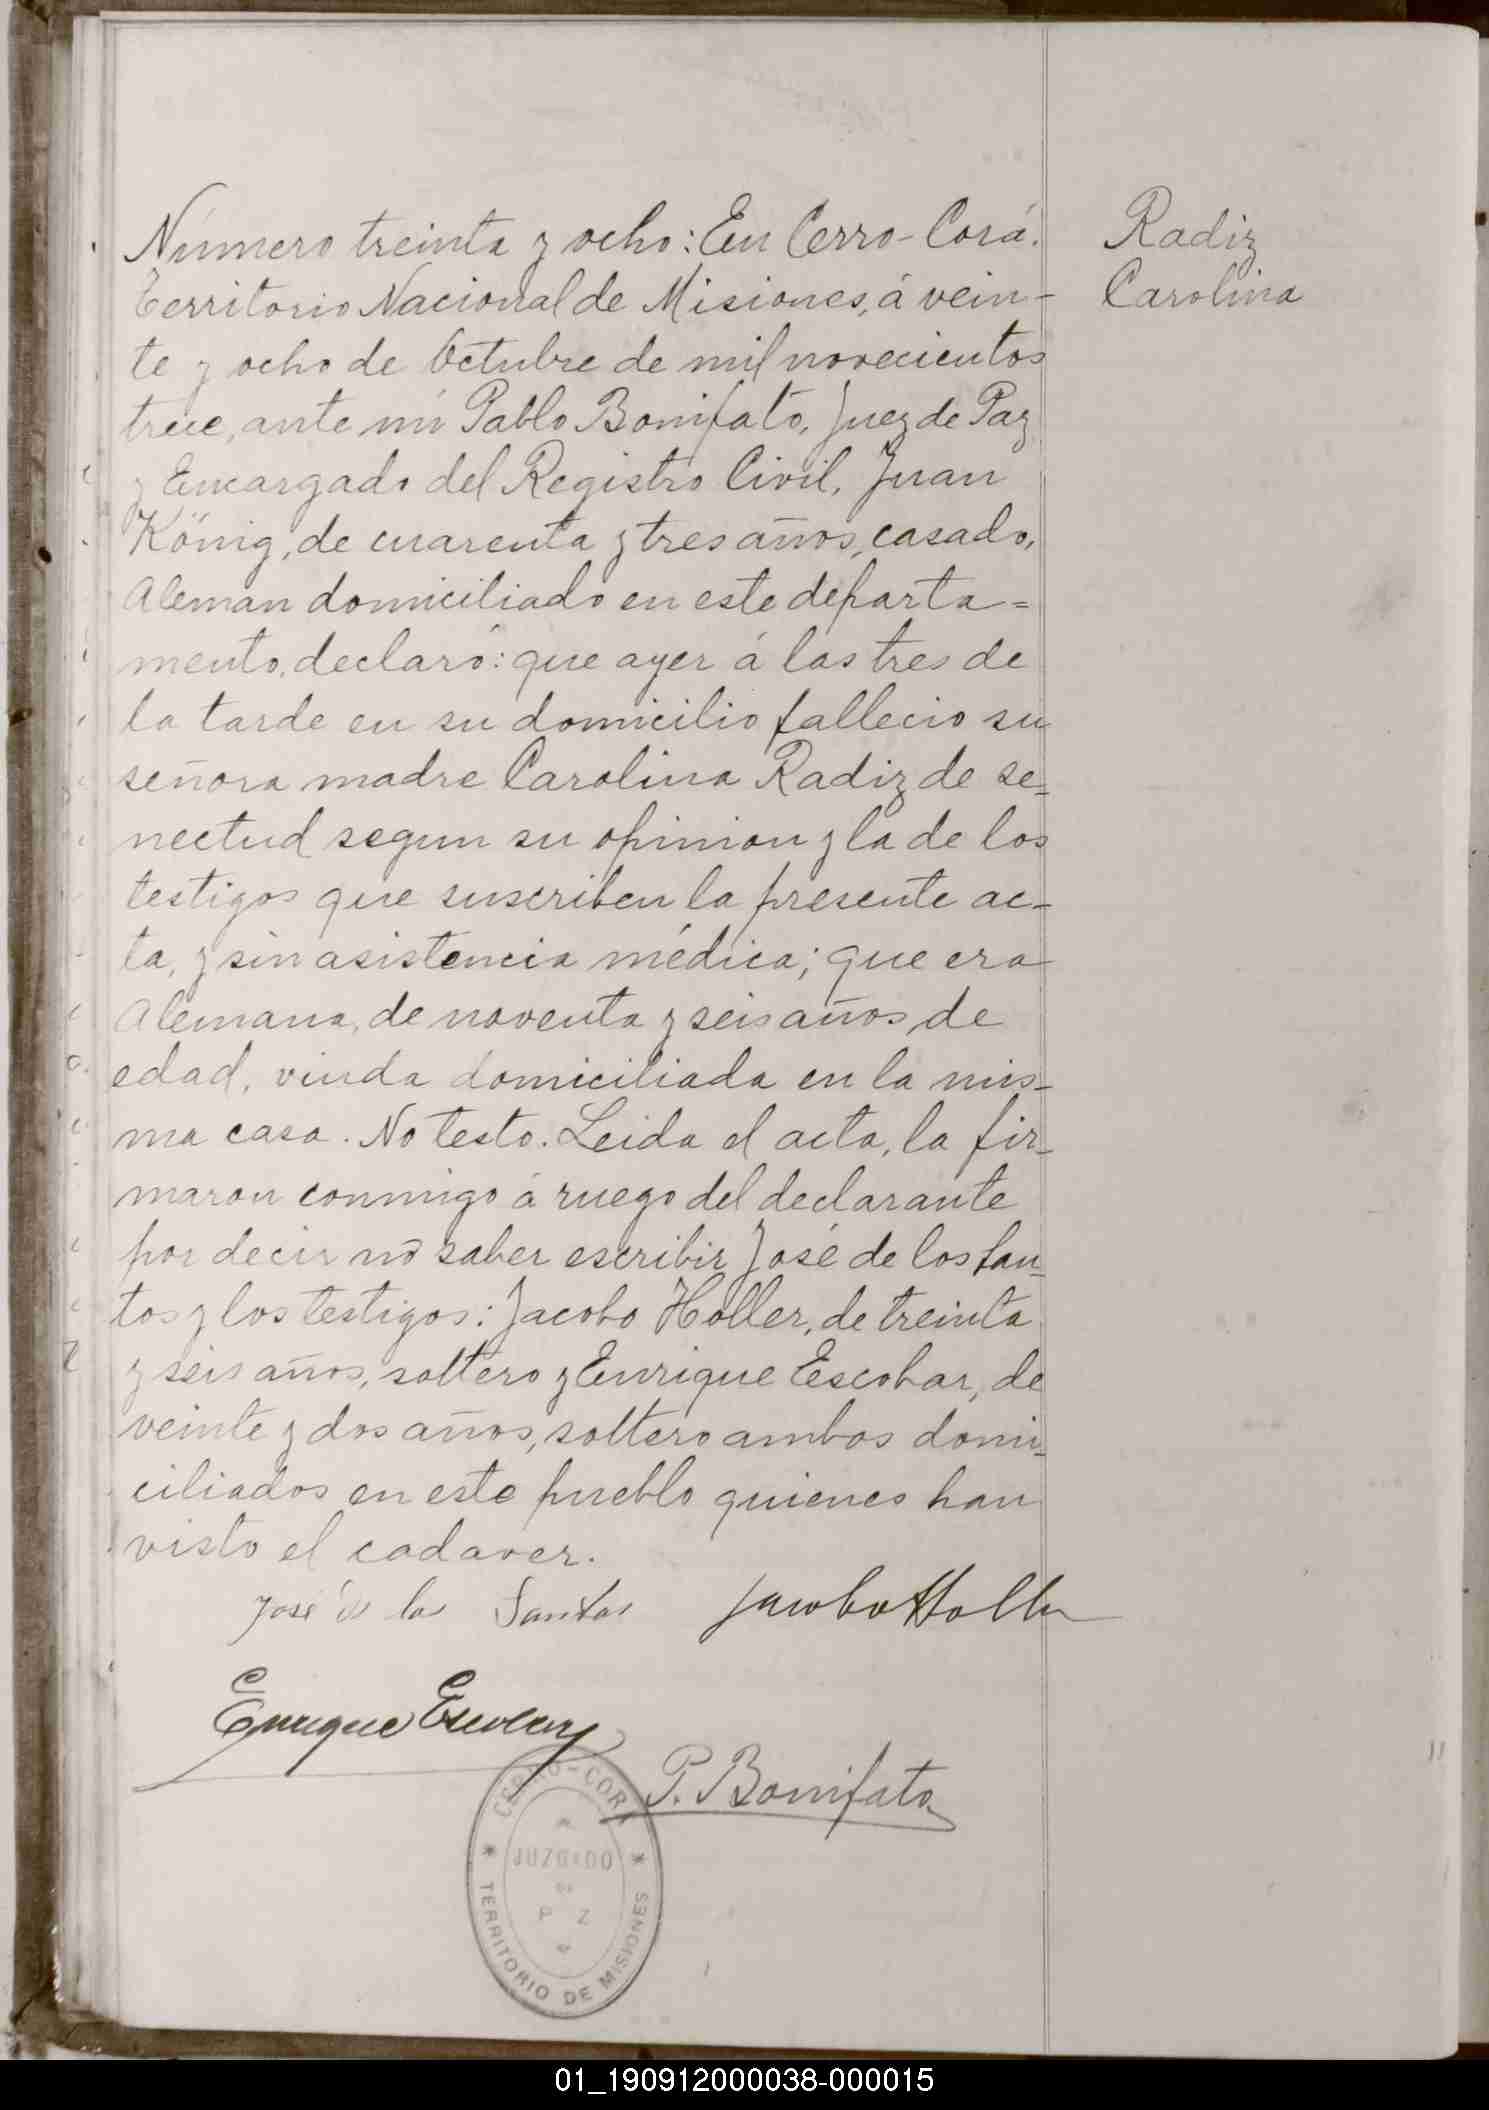 Número treinta y ocho: En Cerro-Corá.
Territorio Nacional de Misiones, á vein-
te y ocho de Octubre de mil novecientos
trece, ante mí Pablo Bonifato, Juez de Paz
y Encargado del Registro Civil, Juan
König, de cuarenta y tres años, casado,
Aleman domiciliado en este departa=
mento, declaró: que ayer á las tres de
la tarde en su domicilio fallecio su
señora madre Carolina Radiz de se-
nectud segun su opinion y la de los
testigos que suscriben la presente ac-
ta, y sin asistencia médica; que era
Alemana, de noventa y seis años de
edad, viuda domiciliada en la mis-
ma casa. No testo. Leida el acta, la fir-
maron conmigo á ruego del declarante
por decir no saber escribir José de los San-
tos y los testigos: Jacobo Holler, de treinta
y seis años, soltero y Enrique Escobar, de
veinte y dos años, soltero ambos domi-
ciliados en este pueblo quienes han
visto el cadaver.
Radiz
Carolina
José de los Santos Jacobo Holler
Enrique Escobar
P. Bonifato
CERRO-CORÁ
JUZGADO
DE
PAZ
TERRITORIO DE MISIONES
01_190912000038-000015